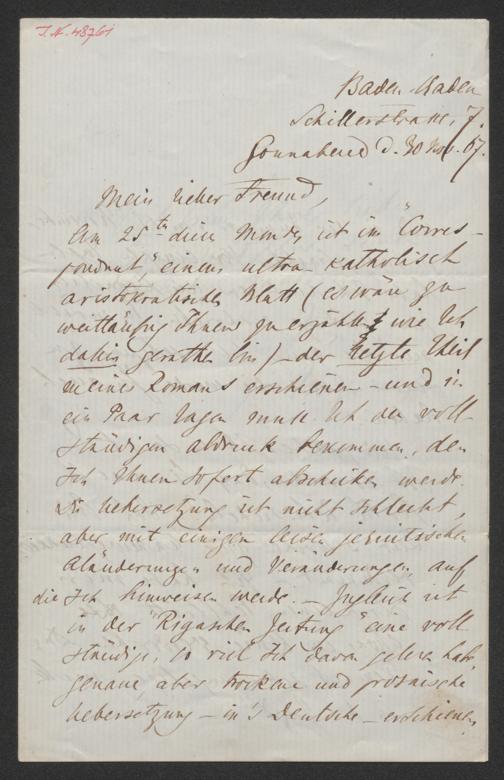 I.N. 48761
Baden-Baden
Schillerstrasse, 7.
Sonnabend d. 30 Nov. 67.
Mein lieber Freund,
Am 25ten dieses Monats ist im "Corres-
pondant", einem ultra-katholisch
aristokratischen Blatt (es wäre zu
weitläufig Ihnen zu erzählen wie Ich
dahin gerathen bin) – der letzte Theil
meines Romans erschienen – und in
ein Paar Tagen muss Ich den voll-
ständigen Abdruck bekommen, den
Ich Ihnen sofort abschicken werde.
Die Uebersetzung ist nicht schlecht,
aber mit einigen leisen jesuitischen
Abänderungen und Veränderungen, auf
die Ich hinweisen werde. – Zugleich ist
in der "Rigaschen Zeitung" eine voll-
ständige, so viel Ich davon gelesen habe,
genaue, aber trockene und prosaische
Uebersetzung – in's Deutsche – erschienen,